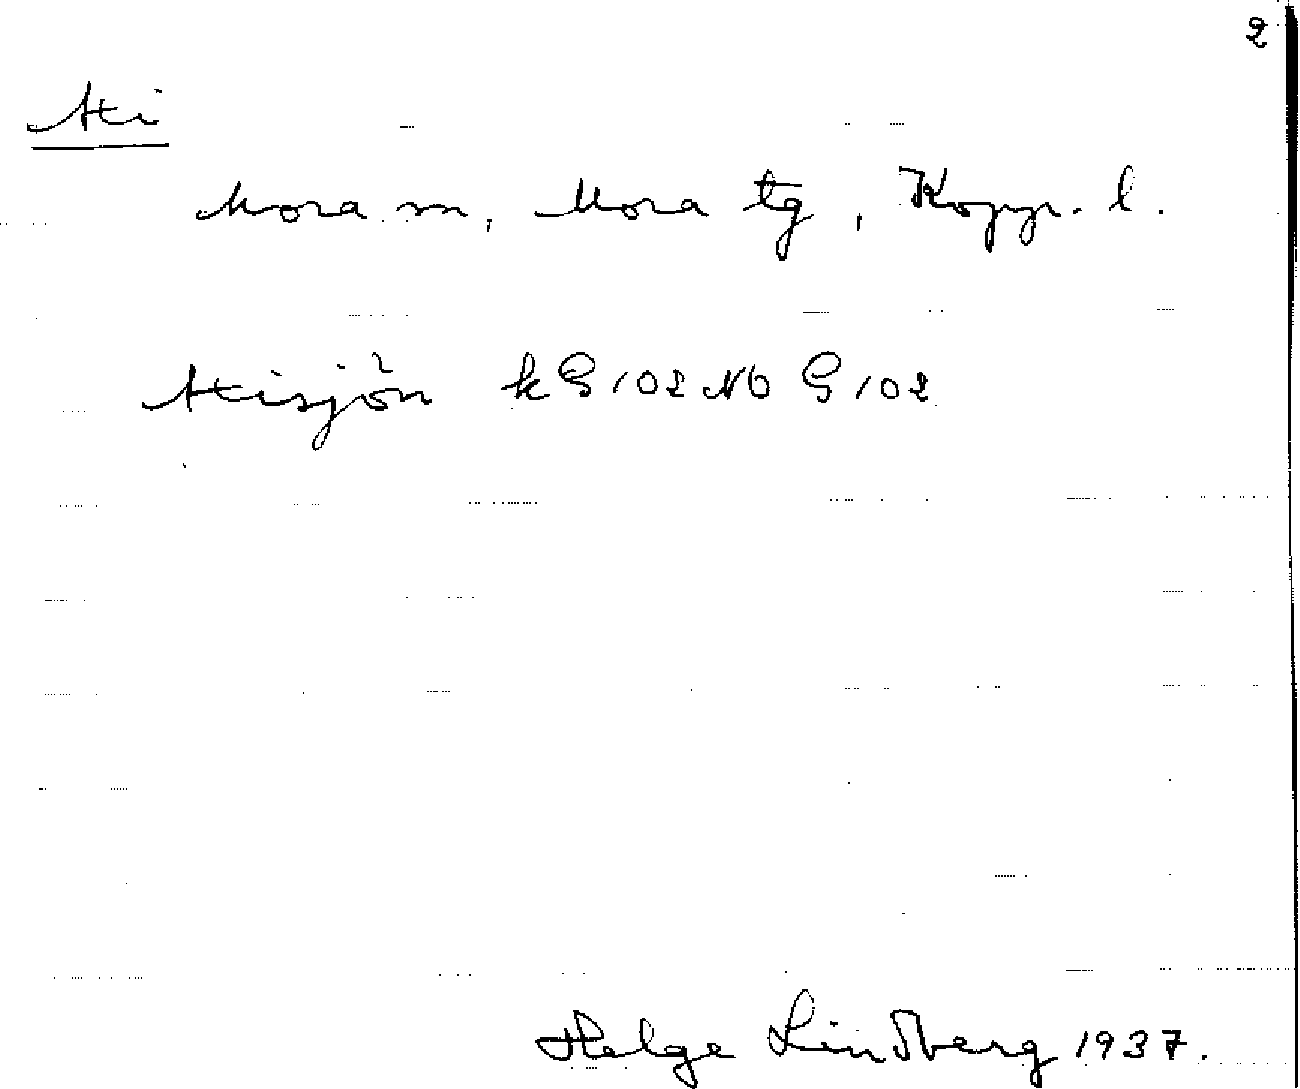 2
Hi
Mora sn, Mora tg, Kopp. l.
Hisjön kG102 NO G102
Helge Lindberg 1937.